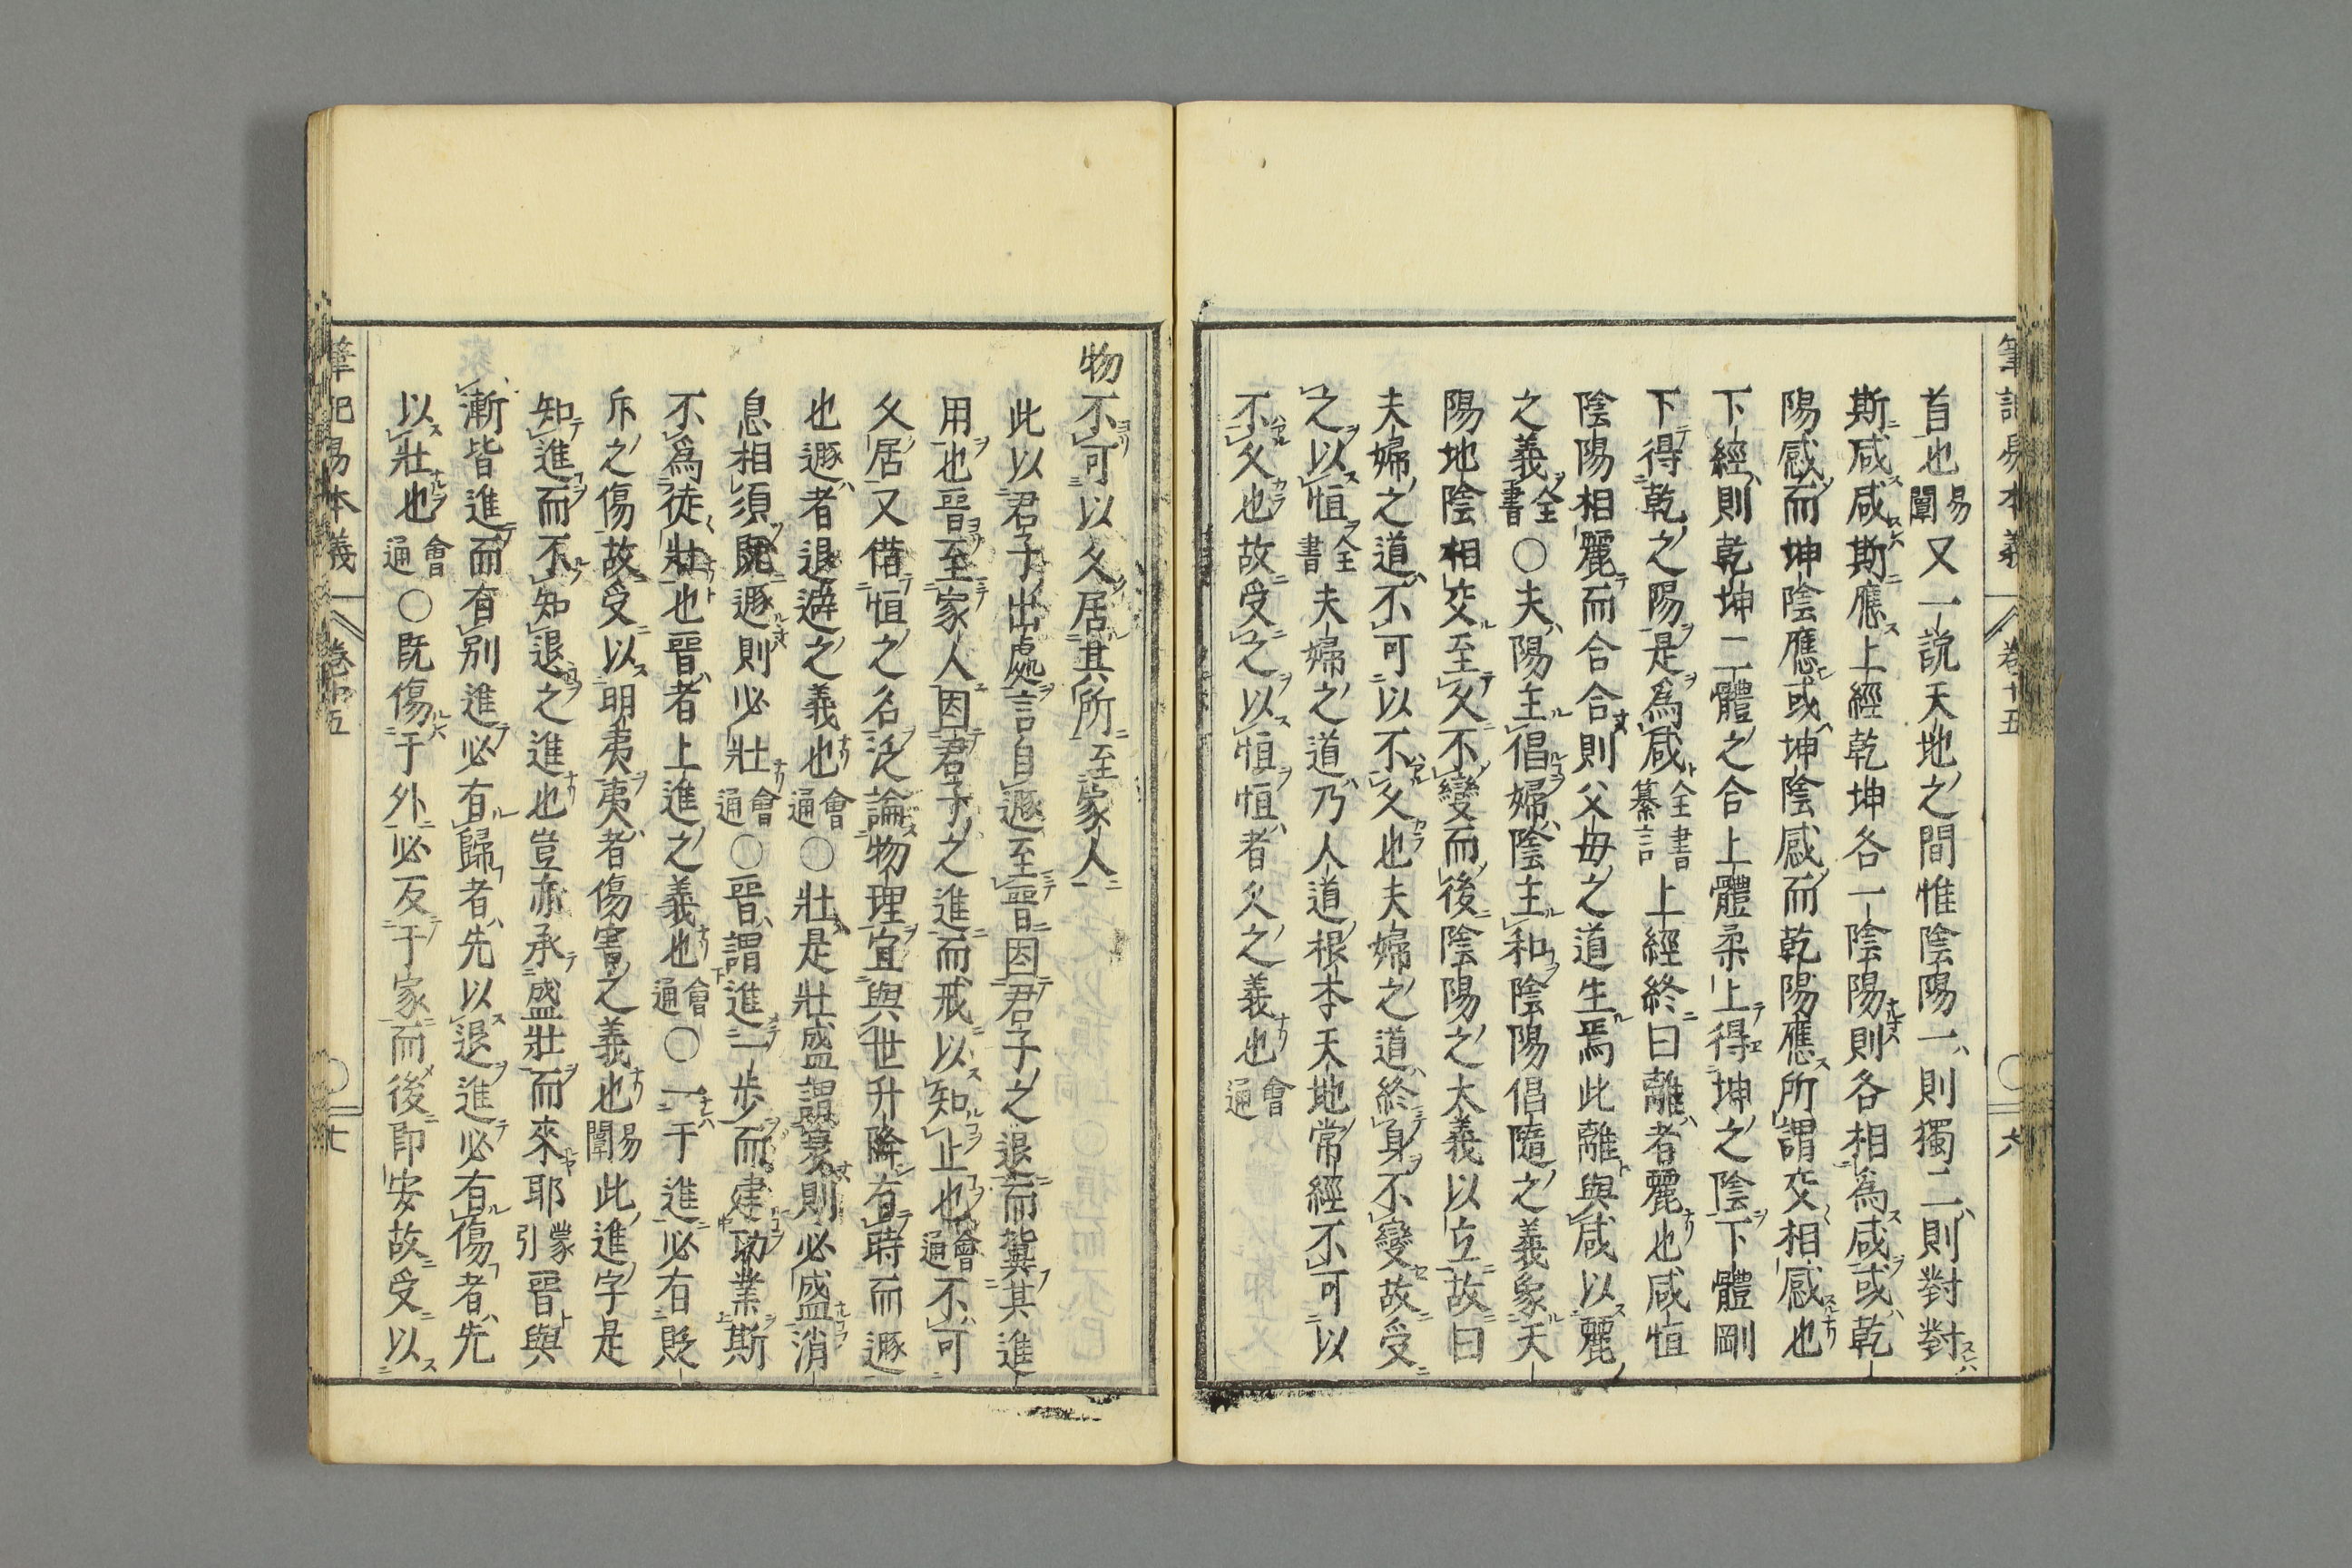 筆記易本義 卷十五 六
首也易闡又一說天地之間惟陰陽一則獨二則對對
斯咸咸斯應上經乾坤各一陰陽則各相為咸或乾
陽感而坤陰應或坤陰感而乾陽應所謂交相感也
下經則乾坤二體之合上體柔上得坤之陰下體剛
下得乾之陽是為咸全書纂言上經終曰離者麗也咸恒
陰陽相麗而合合則父母之道生焉此離與咸以麗
之義全書○夫陽主倡婦陰主和陰陽倡隨之義象天
陽地陰相交至久不變而後陰陽之大義以立故曰
夫婦之道不可以不久也夫婦之道終身不變故受
之以恒全書夫婦之道乃人道根本天地常經不可以
不久也故受之以恒恒者久之義也會通
物不可以久居其所至家人
此以君子出處言自遯至晉因君子之退而冀其進
用也晉至家人因君子之進而戒以知止也會通不可
久居又借恒之名泛論物理宜與世升降有時而遯
也遯者退避之義也會通○壯是壯盛謂衰則必盛消
息相須既遯則必壯會通○晉謂進一步而建功業斯
不為徒壯也晉者上進之義也會通○一于進必有貶
斥之傷故受以明夷夷者傷害之義也易闡此進字是
知進而不知退之進也豈亦承盛壯而來耶蒙引晉與
漸皆進而有別進必有歸者先以退進必有傷者先
以壯也會通○既傷于外必反于家而後即安故受以
筆記易本義 卷十五 七